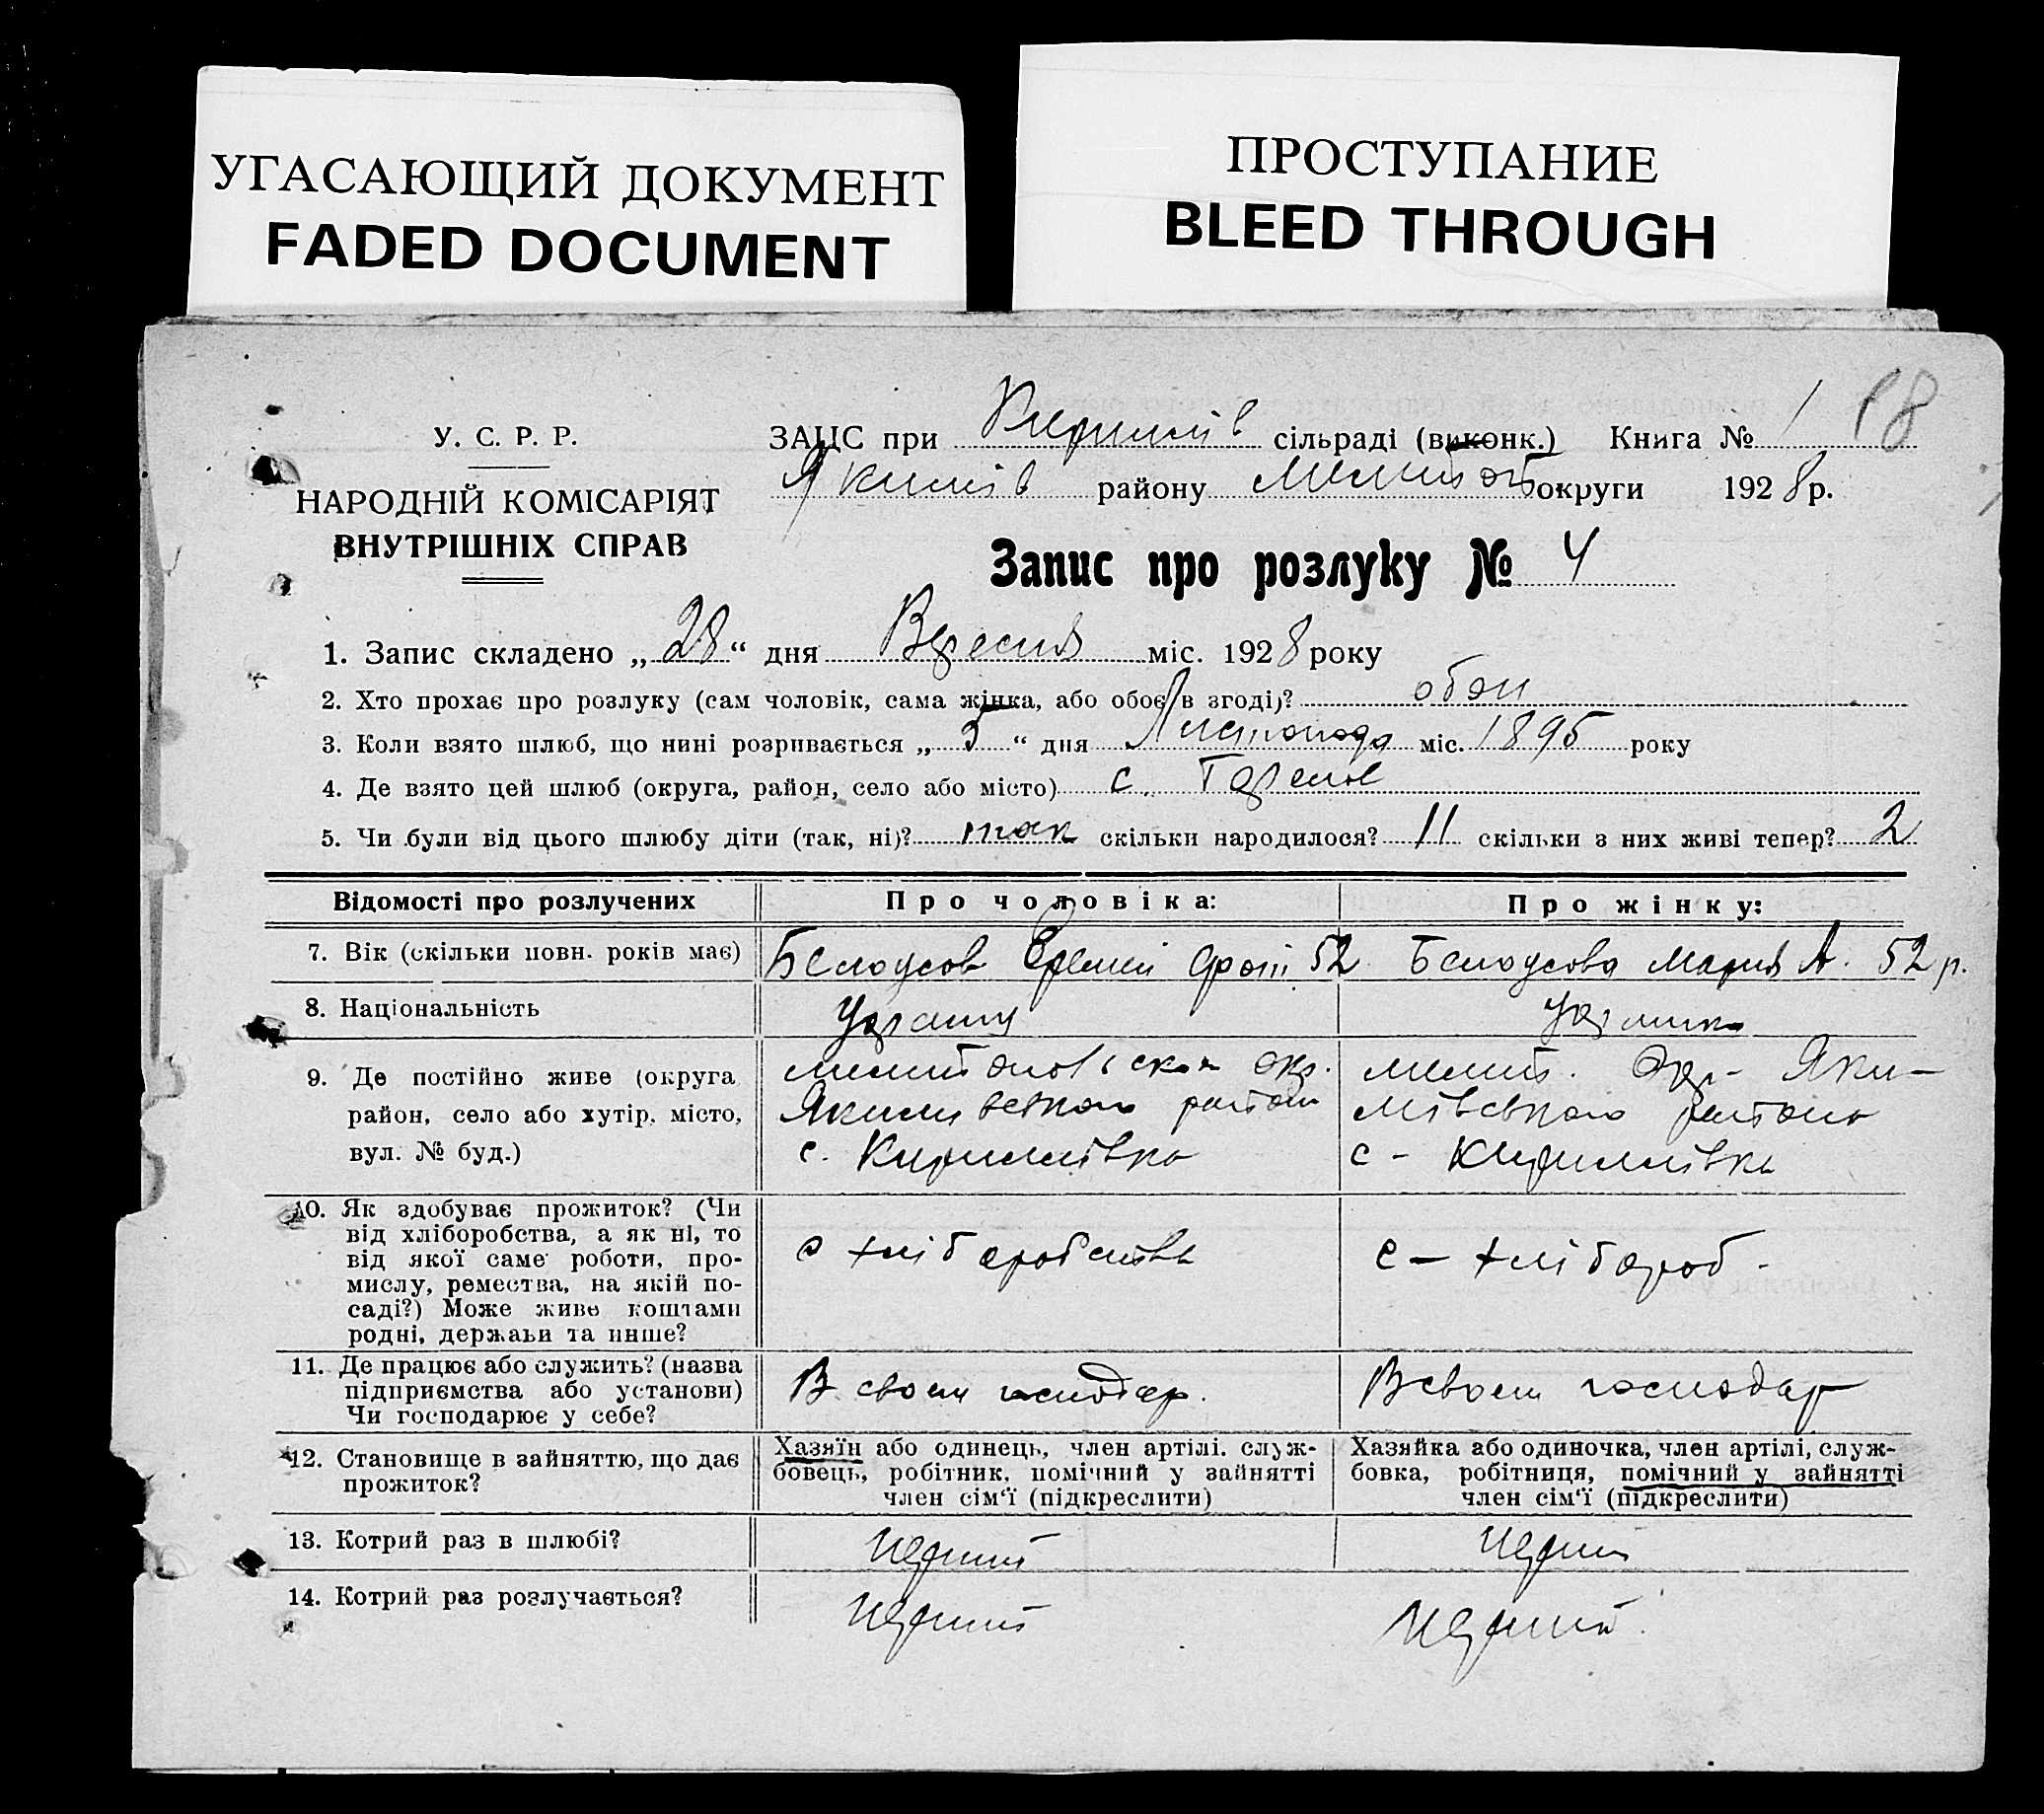 УГАСАЮЩИЙ ДОКУМЕНТ
FADED DOCUMENT
ПРОСТУПАНИЕ
BLEED THROUGH
У. С. Р. Р.
НАРОДНІЙ КОМІСАРІЯТ
ВНУТРІШНІХ СПРАВ
18
ЗАЦС при Кирилів сільраді (виконк.) Книга № 1
Якимів району Мелитоп округи 1928 р.
Запис про розлуку № 4
1. Запис складено „28“ дня Вересня міс. 1928 року
2. Хто прохає про розлуку (сам чоловік, сама жінка, або обоє в згоді)?
3. Коли взято шлюб, що нині розривається „5“ дня Листопада міс. 1895 року
4. Де взято цей шлюб (округа, район, село або місто) с.
5. Чи були від цього шлюбу діти (так, ні)? так скільки народилося? 11 скільки з них живі тепер? 2
Відомості про розлучених Про чоловіка: Про жінку:
7. Вік (скільки повн. років має) Белоусов Еремей 52 Белоусова Мария А. 52 р.
8. Національність
9. Де постійно живе (округа район, село або хутір, місто, вул. № буд.)
Мелитопольской окр.
Якимівського район
с. Кирилівка
Мелит. Окр- Яки-
мівського району
с - Кирилівка
10. Як здобуває прожиток? (Чи
від хліборобства, а як ні, то
від якої саме роботи, про-
мислу, ремества, на якій по-
саді?) Може живе коштами
родні, держави та инше?
с хліборобства
с - хлібороб.
11. Де працює або служить? (назва
підприємства або установи)
Чи господарює у себе?
В своем господар.
В своем господар
12. Становище в зайняттю, що дає
прожиток?
Хазяїн або одинець, член артілі, служ-
бовець, робітник, помічний у зайнятті
член сім‘ї (підкреслити)
Хазяйка або одиночка, член артілі, служ-
бовка, робітниця, помічний у зайнятті
член сім‘ї (підкреслити)
13. Котрий раз в шлюбі? перший перший
14. Котрий раз розлучається? перший перший